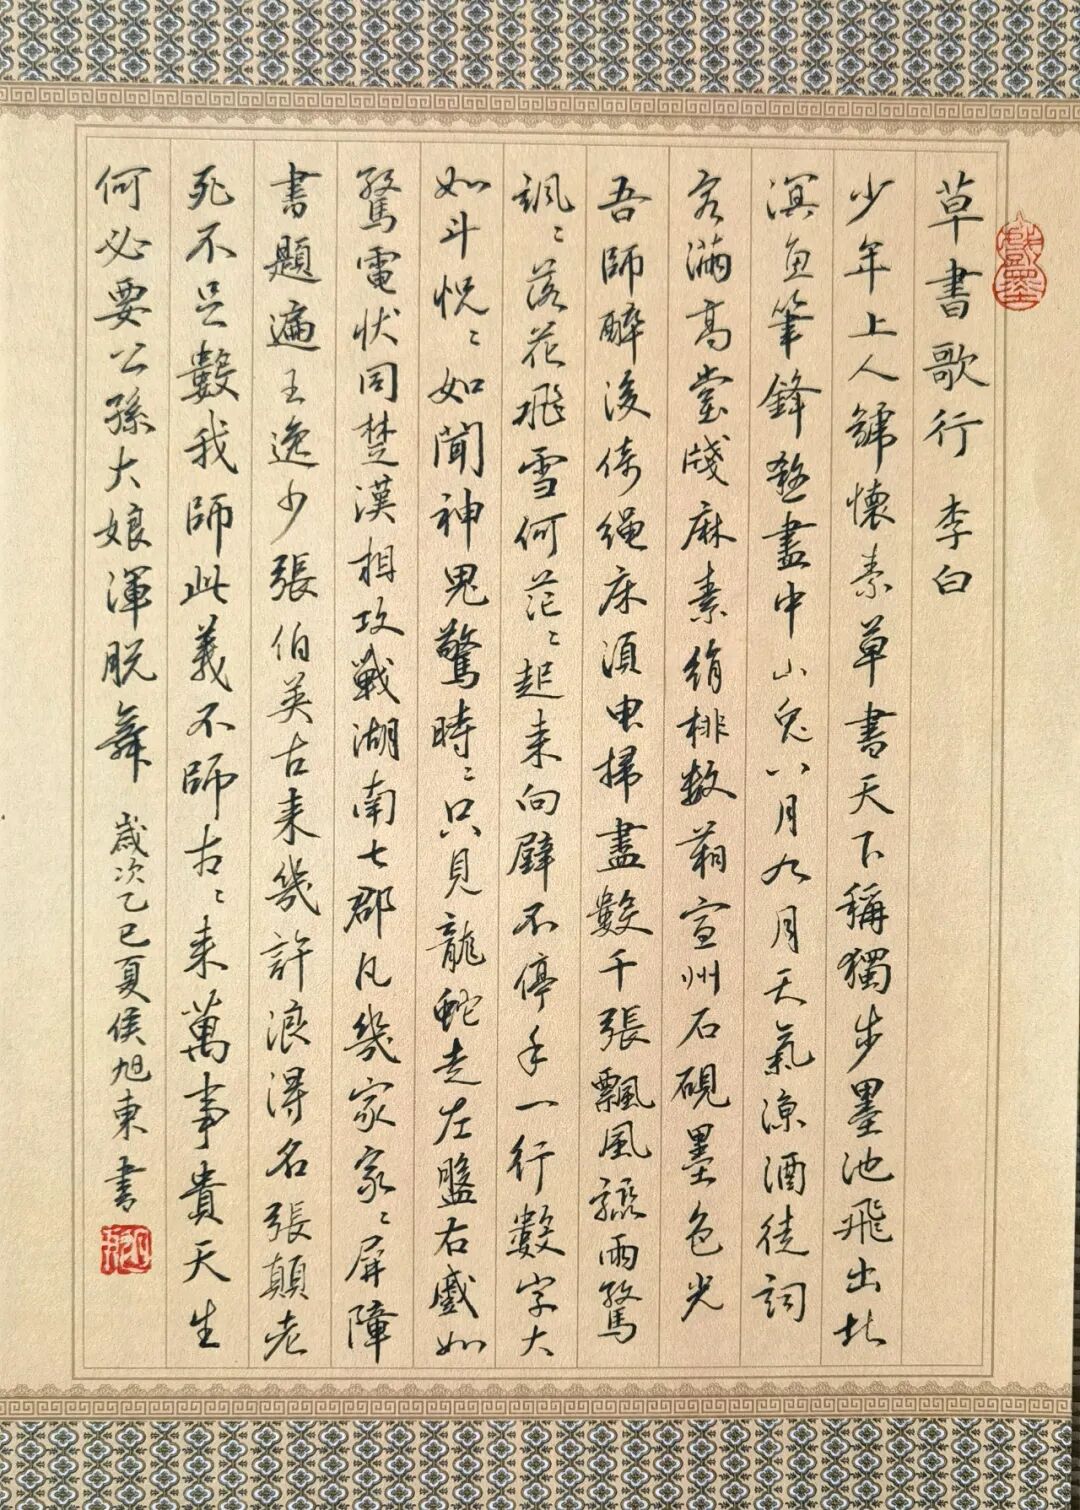 草書歌行 李白
少年上人號懷素草書天下稱獨步墨池飛出北
溟魚筆鋒殺盡中山兔八月九月天氣涼酒徒詞
客滿高堂牋麻素絹排數箱宣州石硯墨色光
吾師醉後倚繩床須臾掃盡數千張飄風驟雨驚
颯〻落花飛雪何茫〻起來向壁不停手一行數字大
如斗怳〻如聞神鬼驚時〻只見龍蛇走左盤右蹙如
驚電狀同楚漢相攻戰湖南七郡凡幾家家〻屏障
書題遍王逸少張伯英古來幾許浪得名張顛老
死不足數我師此義不師古〻來萬事貴天生
何必要公孫大娘渾脫舞 歲次乙巳夏侯旭東書
戲墨